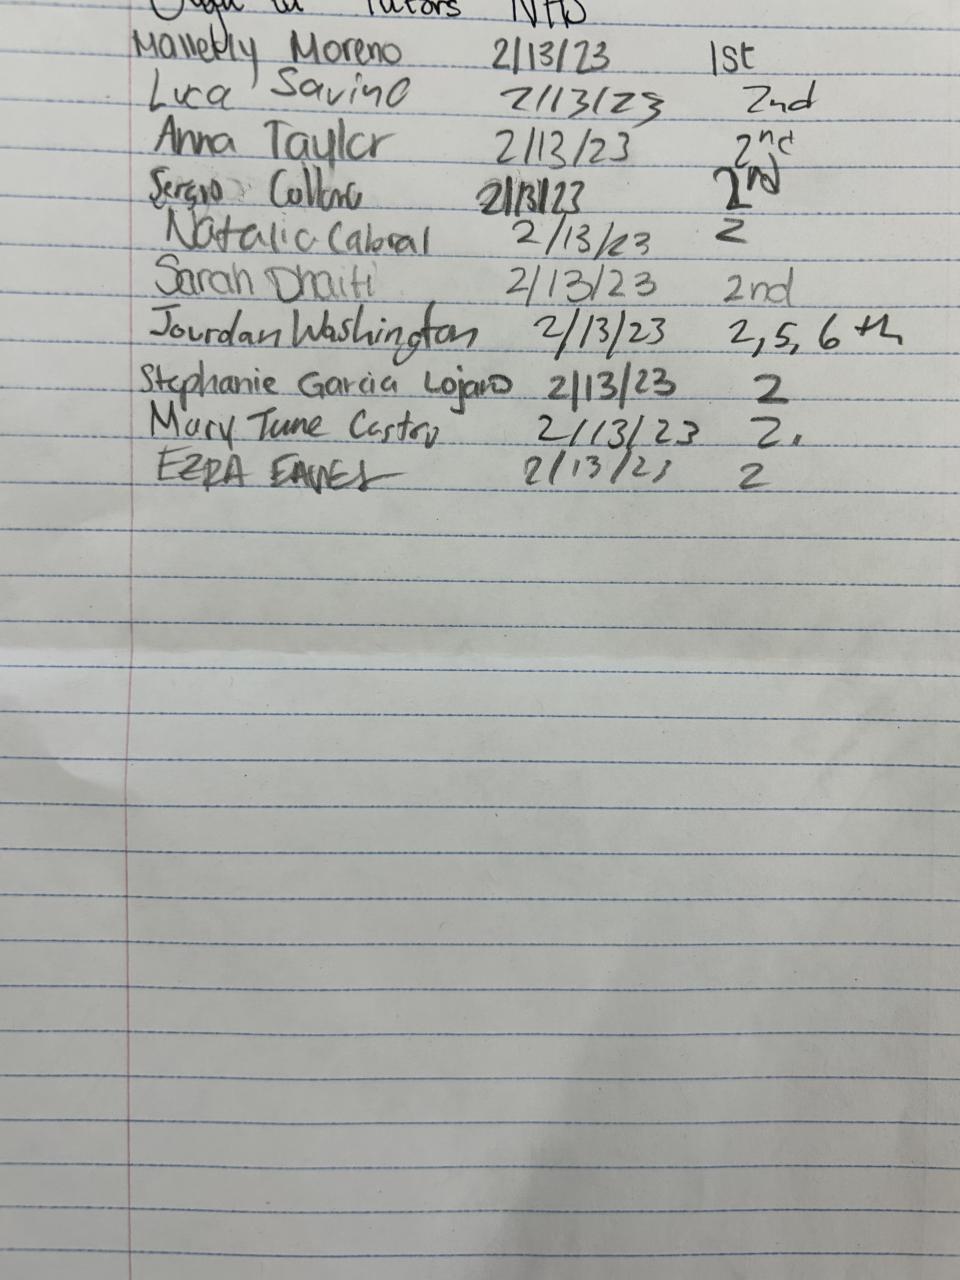 Tutors NHD
Moreno 2/13/23 1st
Luca Savino 2/13/23 2nd
Anna Taylor 2/13/23 2nd
Sergio 2/13/23 2nd
Natalie Cabral 2/13/23 2
Sarah Dhaiti 2/13/23 2nd
Jourdan Washington 2/13/23 2, 5, 6th
Stephanie Garcia Lojano 2/13/23 2
Mary June Castro 2/13/23 2.
EZRA 2/13/23 2